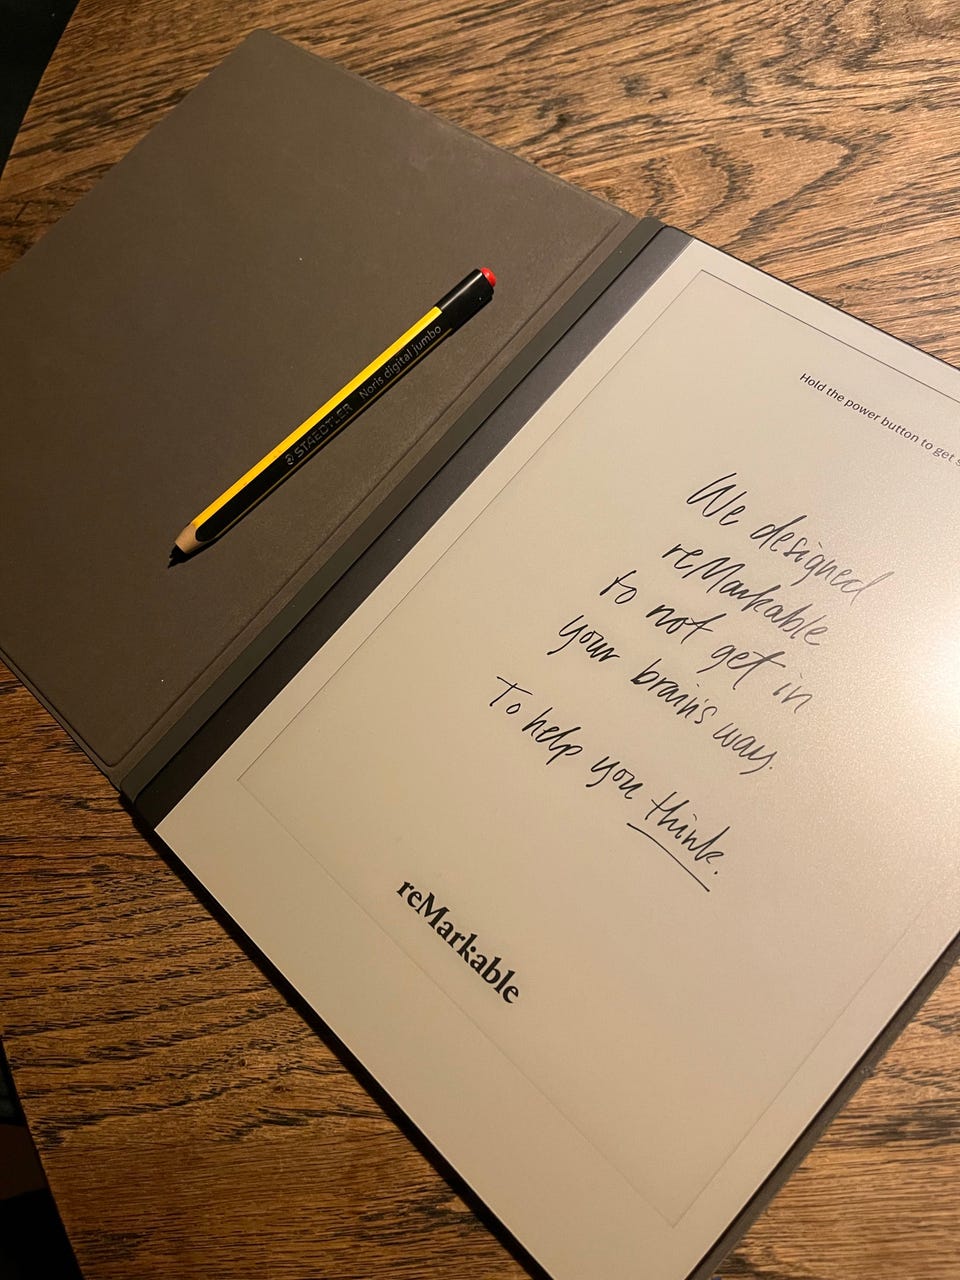 STAEDTLER Noris digital jumbo
Hold the power button to get
We designed
reMarkable
to not get in
your brain's way.
To help you think.
reMarkable